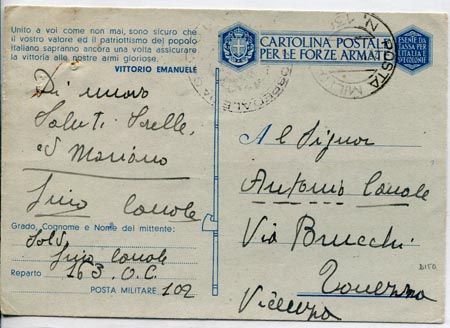 Unito a voi come non mai, sono sicuro che
il vostro valore ed il patriottismo del popolo
italiano sapranno ancora una volta assicurare
la vittoria alle nostre armi gloriose.
VITTORIO EMANUELE
Di nuovo
Saluti
Mariano
Gino Canale
Grado, Cognome e Nome del mittente:
Sold.
Gino Canale
Reparto 163. O.C
POSTA MILITARE 102
CARTOLINA POSTALE
PER LE FORZE ARMATE
ESENTE DA
TASSA PER
L'ITALIA E
SUE COLONIE
POSTA MILITARE N.
Al Signor
Antonio Canale
Via
Vicenza